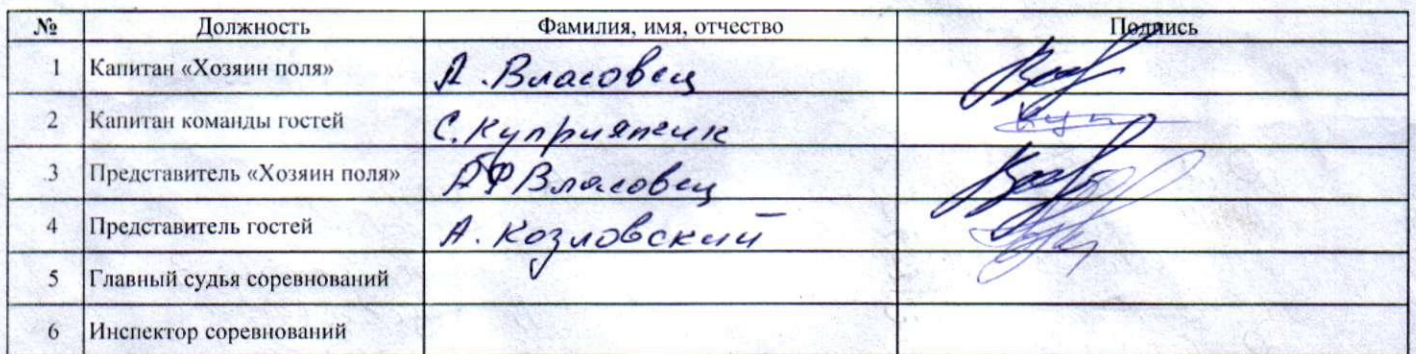 № Должность Фамилия, имя, отчество Подпись
1 Капитан «Хозяин поля» А. Власовец
2 Капитан команды гостей С. Куприянчик
3 Представитель «Хозяин поля» Власовец
4 Представитель гостей А. Козловский
5 Главный судья соревнований
6 Инспектор соревнований